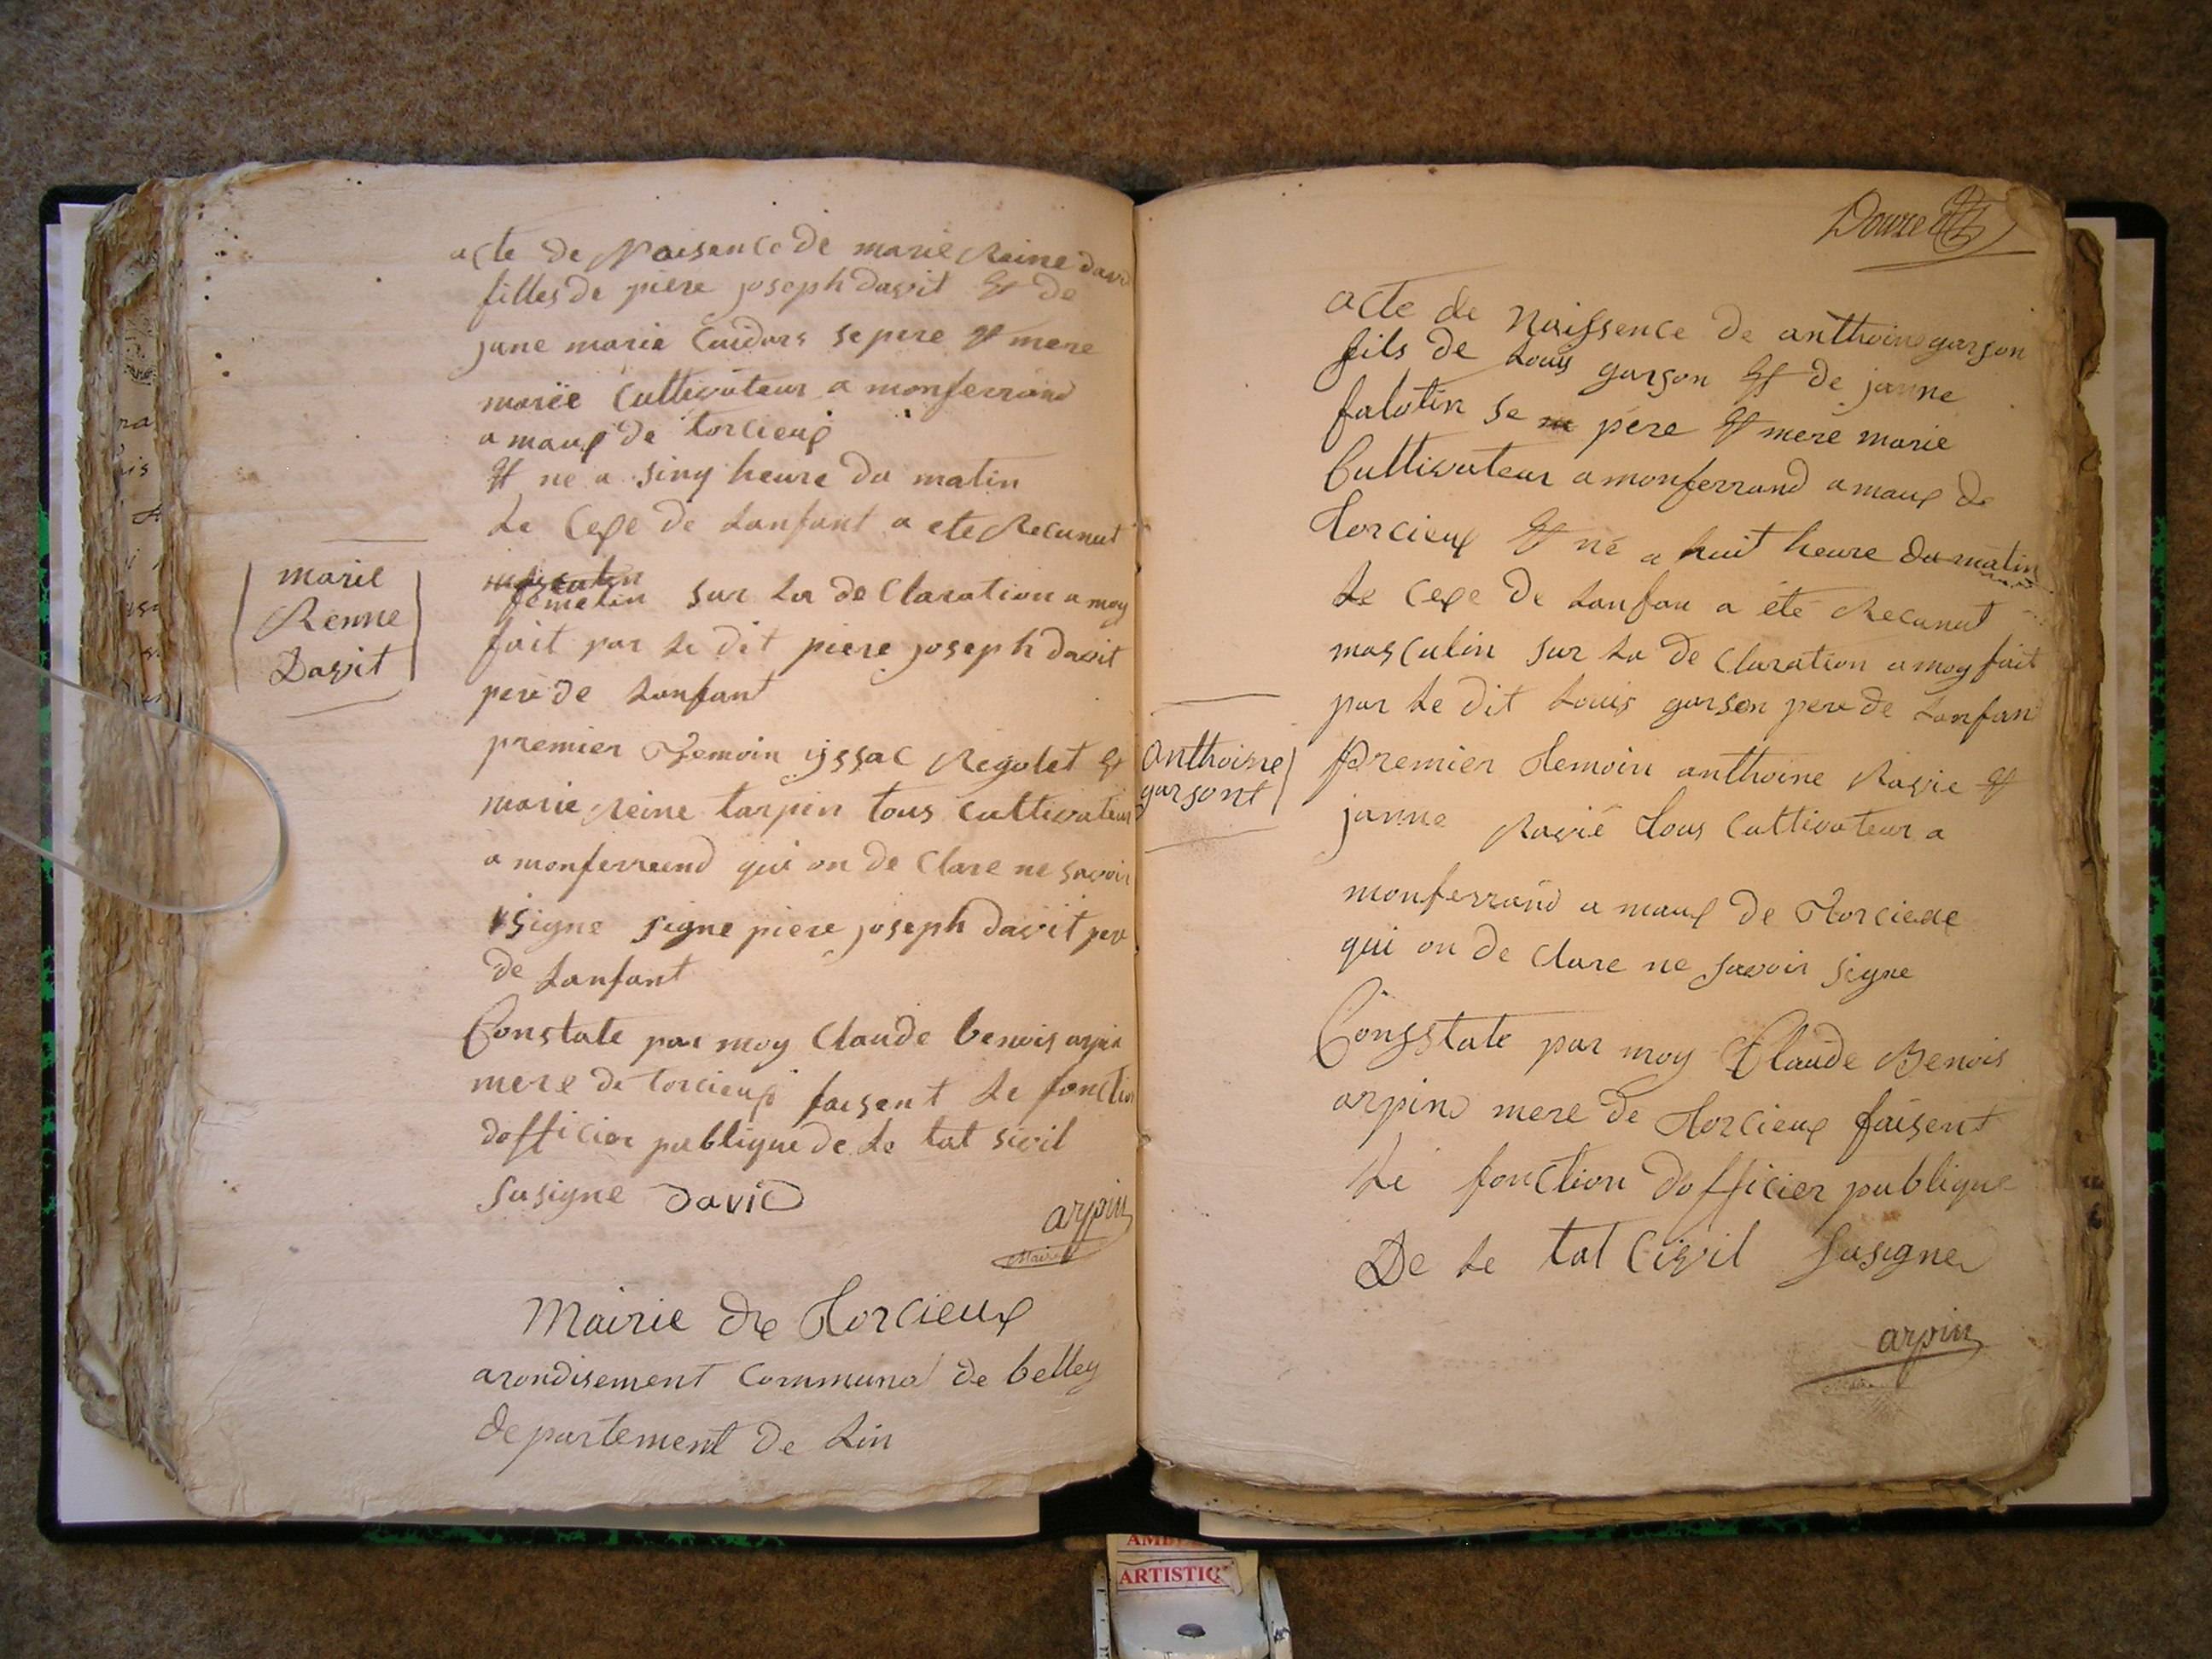 acte de Naisence de marie Reine david
filles de piere joseph davit Et de
jane marie Caidors se pere Et mere
mariée Cultivateur a monferrand
amaux de torcieux
Et ne a sinq heure du matin
Le Cexe de Lanfant a ete Recunut
masculin
femelin sur La de Claration a moy
fait par Le dit piere joseph davit
pere de Lanfant
premier Temoin yssac Rigolet Et
marie Reine tarpin tous Cultivateur
a monferrend qui on de Clare ne savoir
signe signe piere joseph davit pere
de Lanfant
Constate par moy Claude benois arpin
mere de torcieux faisent Le fonction
dofficier publique de Le tat sivil
susigne David
arpin
Maire
marie
Renne
Davit
Mairie de Torcieux
arondisement Communal de belley
departement de Lin
acte de Naissence de anthoine garson
fils de Louis garson Et de janne
falotin se pere Et mere marie
Cultivateur a monferrand amaux de
Torcieux Et né a huit heure du matin
Le Cexe De Lanfan a été Recunut
masculin sur La de Claration a moy fait
par Le dit Louis garson pere de Lanfan
Premier Temoin anthoine Ravie Et
janne Ravié Tous Cultivateur a
monferrand amaux de Torcieux
qui on de Clare ne savoir signe
Consstate par moy Claude Benois
arpin mere de Torcieux faisent
Le fonction dofficier publique
De Le tat Civil susigne
arpin
anthoine
garsont